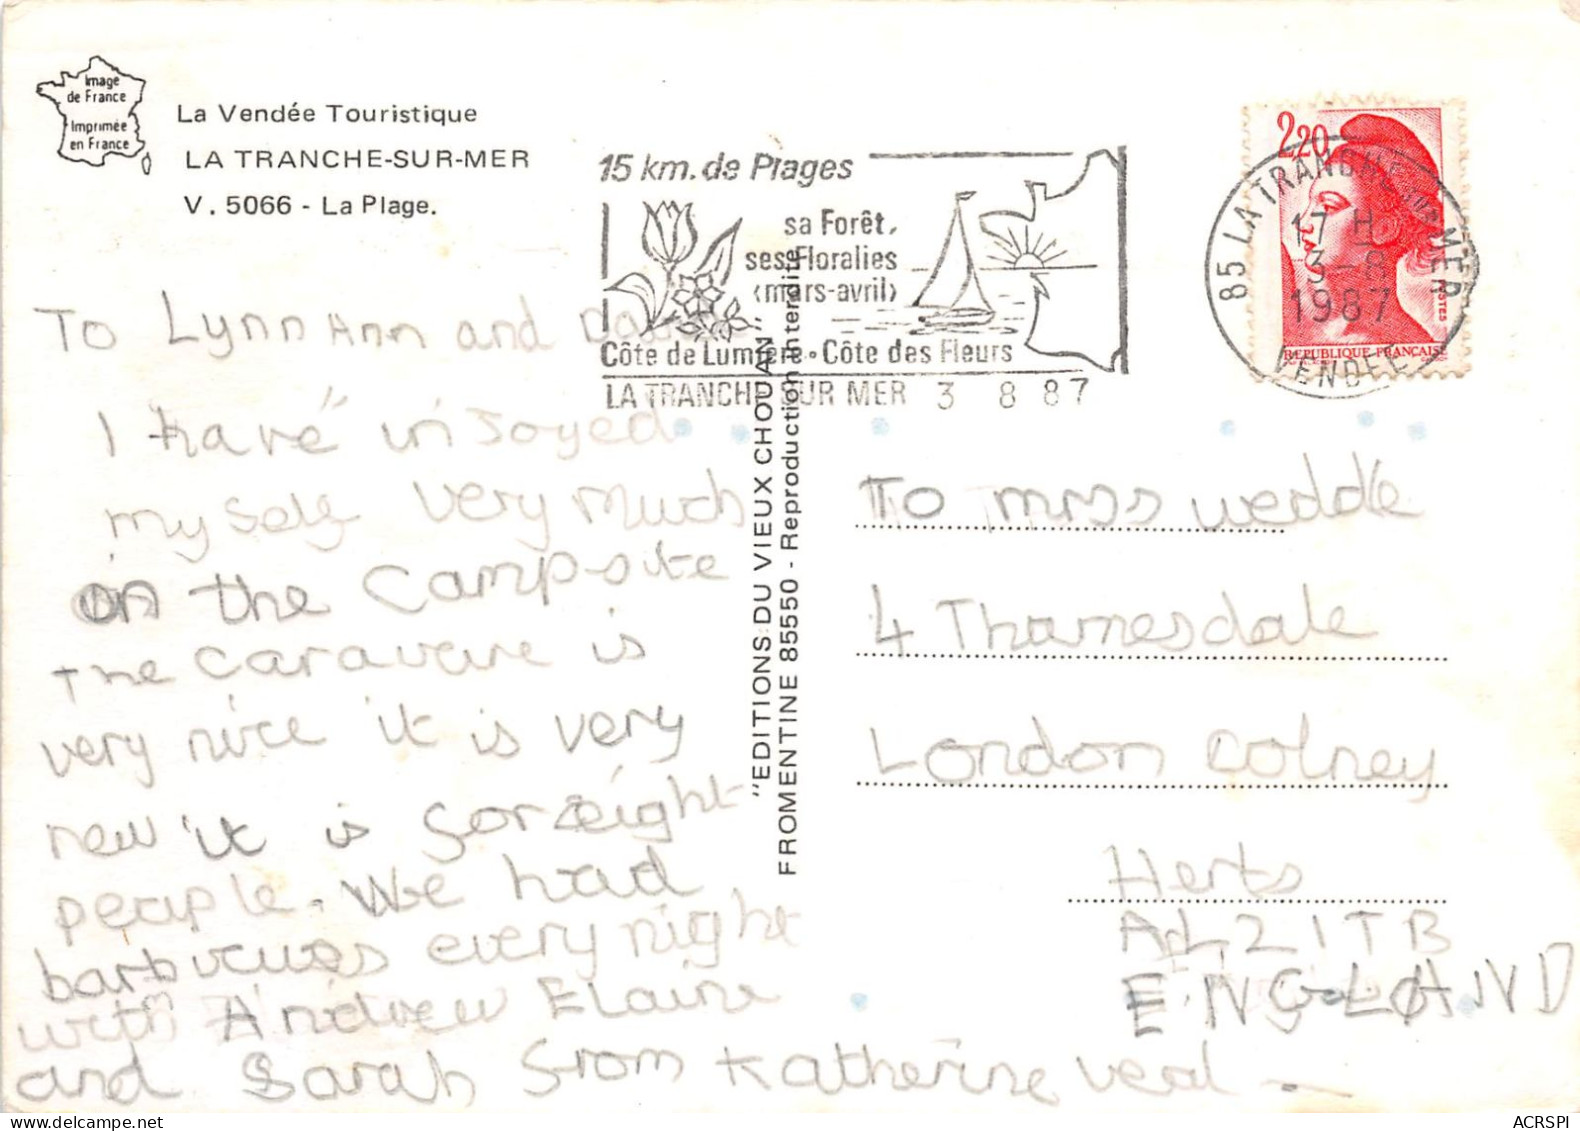 Image
de France
Imprimée
en France
La Vendée Touristique
LA TRANCHE-SUR-MER
V. 5066 - La Plage.
15 km. de Plages
sa Forêt,
ses Floralies
(mars-avril)
Côte de Lumière • Côte des Fleurs
LA TRANCHE SUR MER 3 8 87
2,20
REPUBLIQUE FRANÇAISE
POSTES
85 LA TRANCHE SUR MER
17 H
3-8
1987
VENDEE
To Lynn Ann and
I have injoyed
my self very much
on the Campsite
the caravane is
very nice it is very
new it is for eight
people. We had
barbucues every night
with Andrew Elaine
and Sarah from Katherine
"EDITIONS DU VIEUX CHOUAN"
FROMENTINE 85550 - Reproduction interdite
To miss weddle
4 Thamesdale
London Colney
Herts
AL2 1TB
ENGLAND
ACRSPI